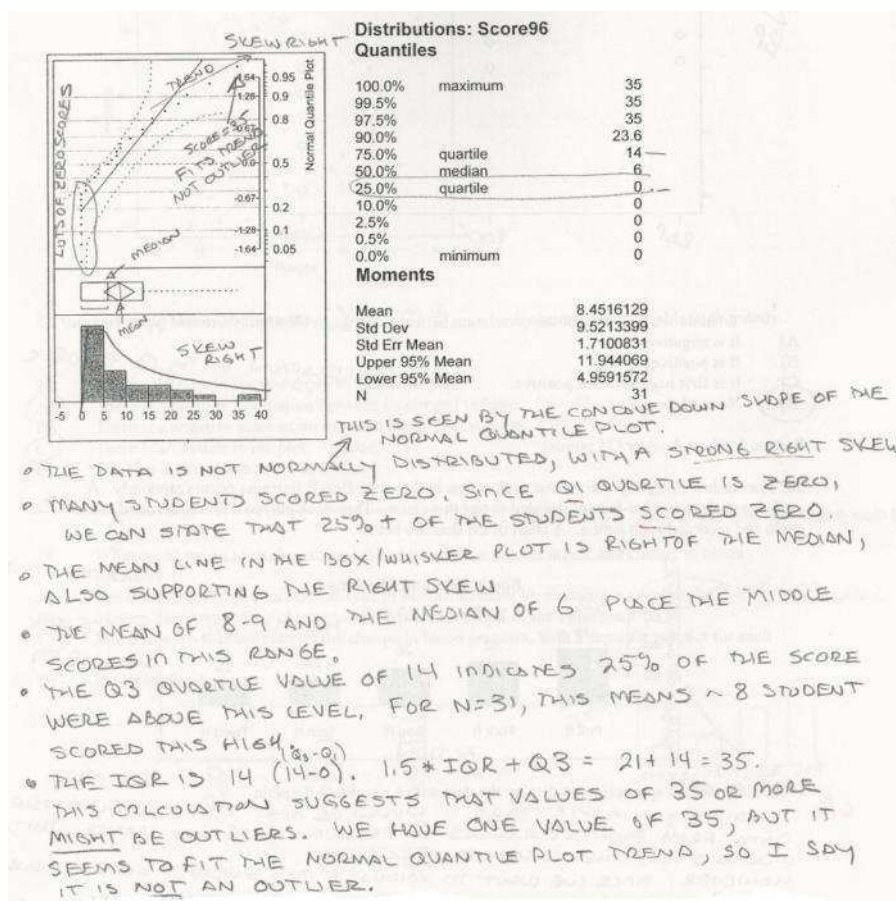 SKEW RIGHT
Distributions: Score96
Quantiles
LOTS OF ZERO SCORES
TREND
SCORE=35
FITS TREND
NOT OUTLIER
1.64
1.28
0.67
0.0
-0.67
-1.28
-1.64
0.95
0.9
0.8
0.5
0.2
0.1
0.05
Normal Quantile Plot
MEDIAN
MEAN
SKEW
RIGHT
-5 0 5 10 15 20 25 30 35 40
100.0% maximum 35
99.5% 35
97.5% 35
90.0% 23.6
75.0% quartile 14
50.0% median 6
25.0% quartile 0
10.0% 0
2.5% 0
0.5% 0
0.0% minimum 0
Moments
Mean 8.4516129
Std Dev 9.5213399
Std Err Mean 1.7100831
Upper 95% Mean 11.944069
Lower 95% Mean 4.9591572
N 31
THIS IS SEEN BY THE CONCAVE DOWN SHAPE OF THE
NORMAL QUANTILE PLOT.
• THE DATA IS NOT NORMALLY DISTRIBUTED, WITH A STRONG RIGHT SKEW
• MANY STUDENTS SCORED ZERO. SINCE Q1 QUARTILE IS ZERO,
WE CAN STATE THAT 25%+ OF THE STUDENTS SCORED ZERO.
• THE MEAN LINE IN THE BOX/WHISKER PLOT IS RIGHT OF THE MEDIAN,
ALSO SUPPORTING THE RIGHT SKEW
• THE MEAN OF 8-9 AND THE MEDIAN OF 6 PLACE THE MIDDLE
SCORES IN THIS RANGE.
• THE Q3 QUARTILE VALUE OF 14 INDICATES 25% OF THE SCORE
WERE ABOVE THIS LEVEL. FOR N=31, THIS MEANS ~ 8 STUDENT
SCORED THIS HIGH.
(Q3-Q1)
• THE IQR IS 14 (14-0). 1.5 * IQR + Q3 = 21 + 14 = 35.
THIS CALCULATION SUGGESTS THAT VALUES OF 35 OR MORE
MIGHT BE OUTLIERS. WE HAVE ONE VALUE OF 35, BUT IT
SEEMS TO FIT THE NORMAL QUANTILE PLOT TREND, SO I SAY
IT IS NOT AN OUTLIER.